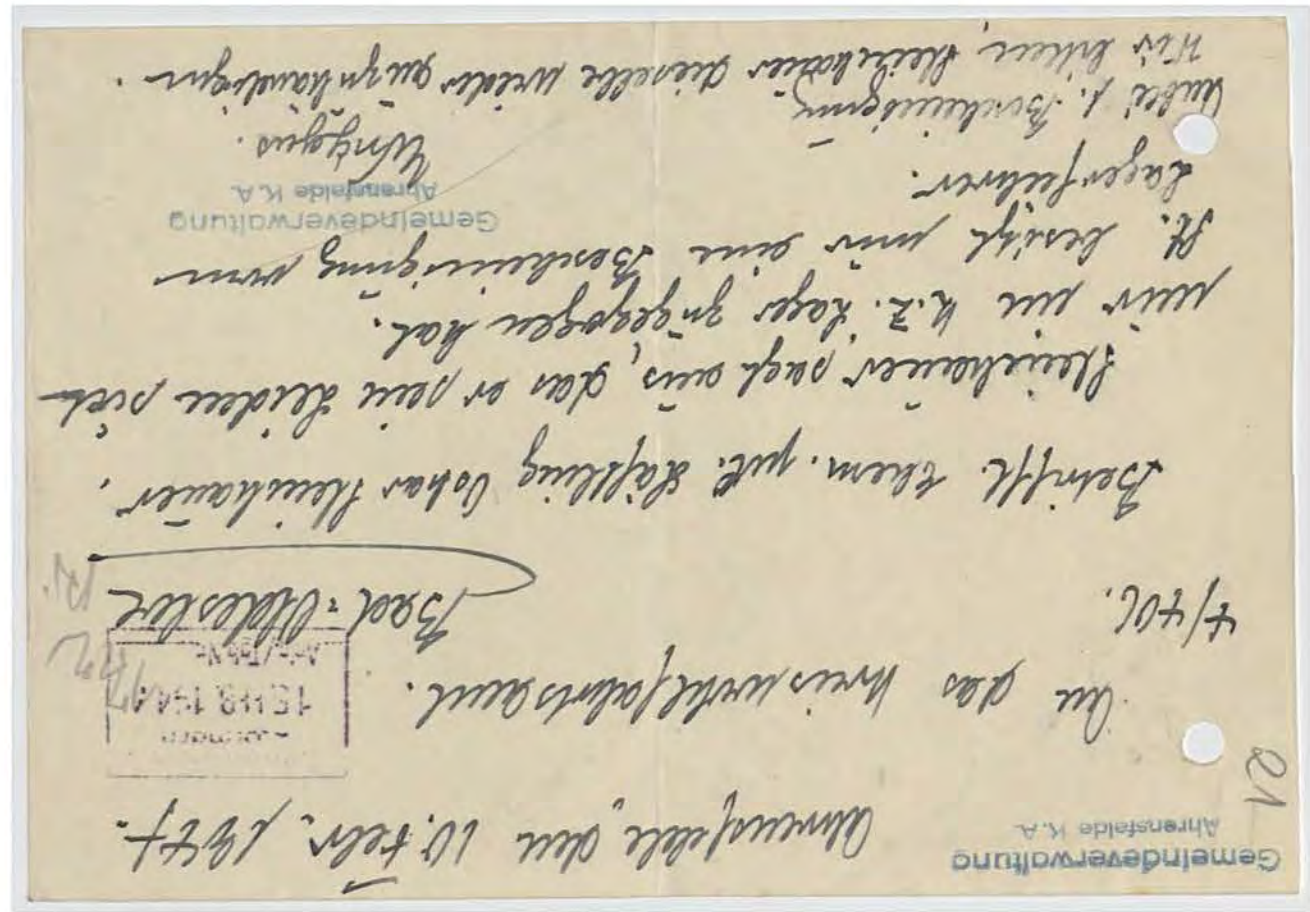 Gemeindeverwaltung
Ahrensfelde K. A.
21
Ahrensfelde, den 10. Febr. 1947.
An das Kreiswohlfahrtsamt.
Stormarn
15. FEB. 1947
4/406.
Bad-Oldesloe
Betrifft. ehem. pol. Häftling Oskar Steinhauer.
Steinhauer sagt aus, das er sein Leiden sich
nur im K.Z. Lager zugezogen hat.
St. besitzt nur eine Bescheinigung vom
Lagerführer.
Gemeindeverwaltung
Ahrensfelde K. A.
Anbei 1. Bescheinigung
Wir bitten, Steinhauer dieselbe wieder auszuhändigen.